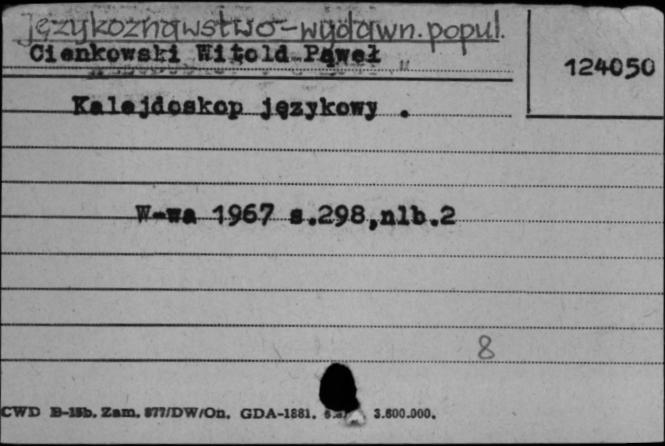 językoznawstwo-wydawn.popul.
Cienkowski Witold Paweł
124050
Kalejdoskop językowy .
W-wa 1967 s.298,nlb.2
8
CWD B-15b. Zam. 877/DW/On. GDA-1881. 3.600.000.